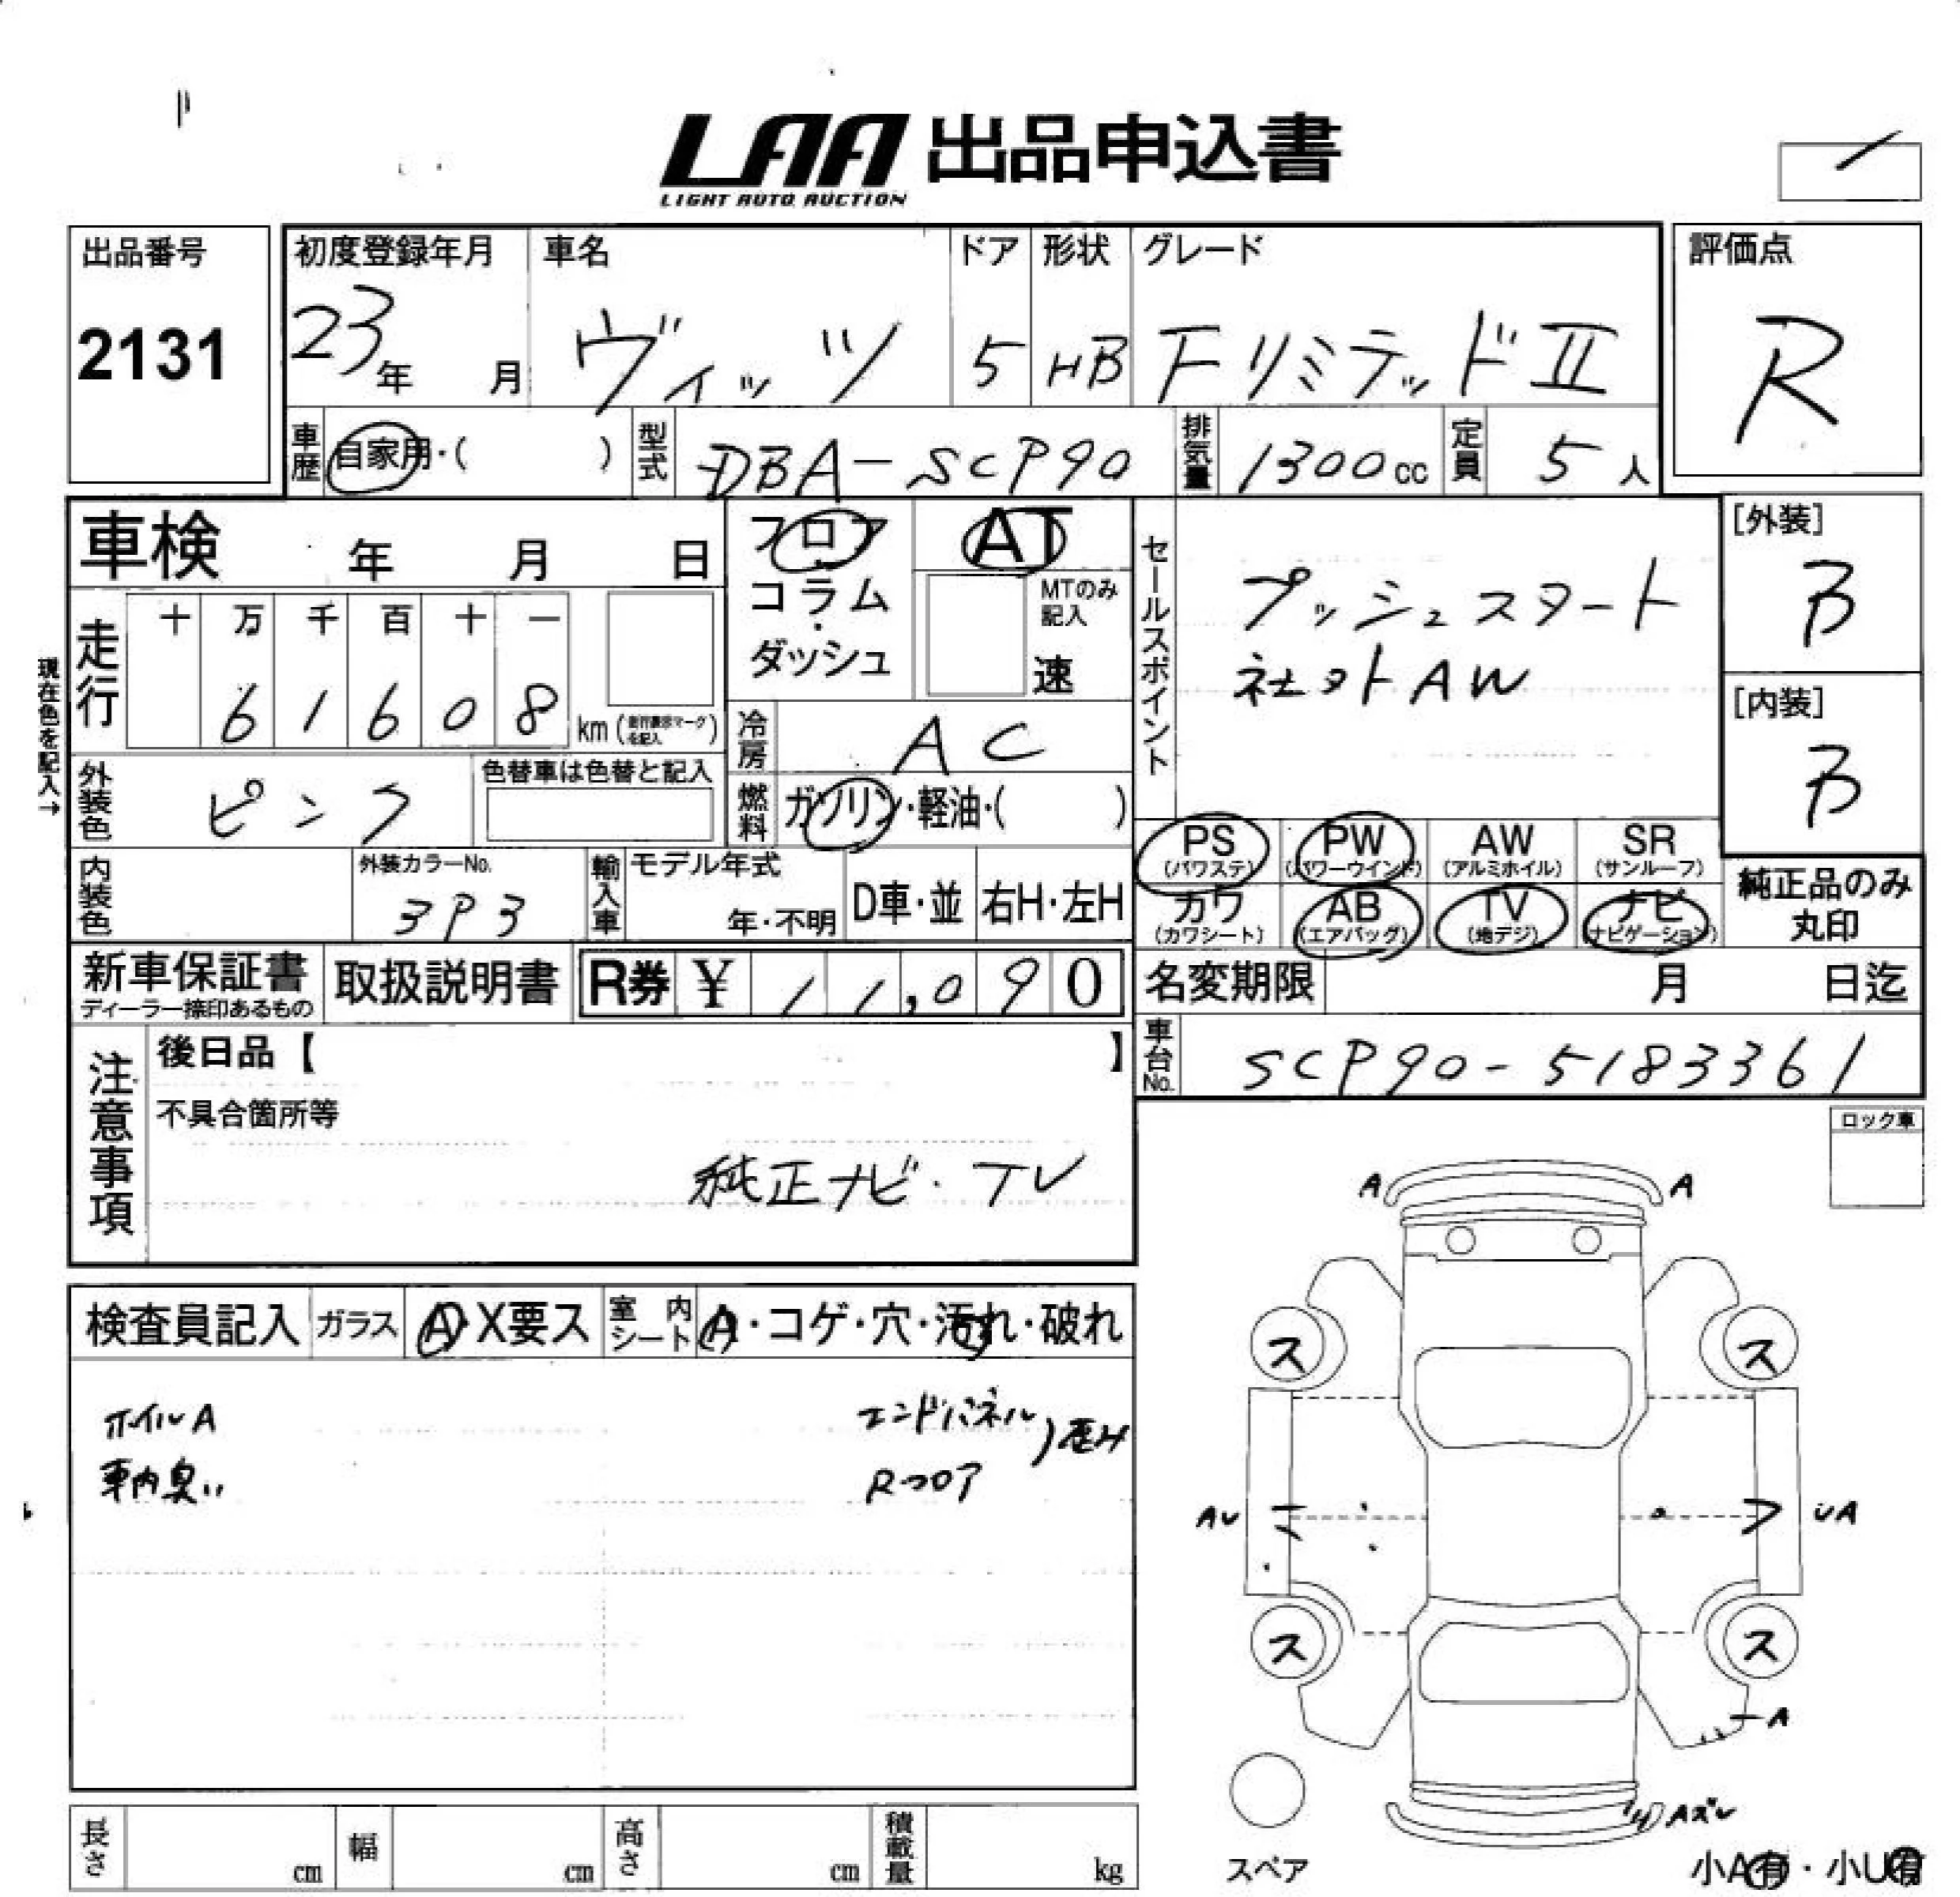 LAA 出品申込書
LIGHT AUTO AUCTION
出品番号
2131
初度登録年月
23年 月
車名
ヴィッツ
ドア
5
形状
HB
グレード
FリミテッドⅡ
評価点
R
車歴 自家用・( )
型式 DBA-SCP90
排気量 1300cc
定員 5人
車検 年 月 日
フロア・コラム・ダッシュ
AT
MTのみ記入
速
セールスポイント
プッシュスタート
社外AW
[外装]
B
[内装]
B
現在色を記入→
走行
十 万 千 百 十 一
6 1 6 0 8 km
冷房 AC
外装色 ピンク
色替車は色替と記入
燃料 ガソリン・軽油・( )
PS (パワステ)
PW (パワーウインド)
AW (アルミホイル)
SR (サンルーフ)
カワ (カワシート)
AB (エアバッグ)
TV (地デジ)
ナビ (ナビゲーション)
純正品のみ丸印
内装色
外装カラーNo.
3P3
輸入車
モデル年式
年・不明
D車・並
右H・左H
新車保証書
ディーラー捺印あるもの
取扱説明書
R券 ¥ 11,090
名変期限 月 日迄
車台No. SCP90-5183361
注意事項
後日品【 】
不具合箇所等
純正ナビ・TV
ロック車
A A
検査員記入
ガラス A・X要ス
室内シート A・コゲ・穴・汚れ・破れ
ホイルA
車内臭い
エンドパネル
Rフロア
歪み
ス ス
AU UA
ス ス
A
Aズレ
スペア
小A有・小U有
長さ cm
幅 cm
高さ cm
積載量 kg